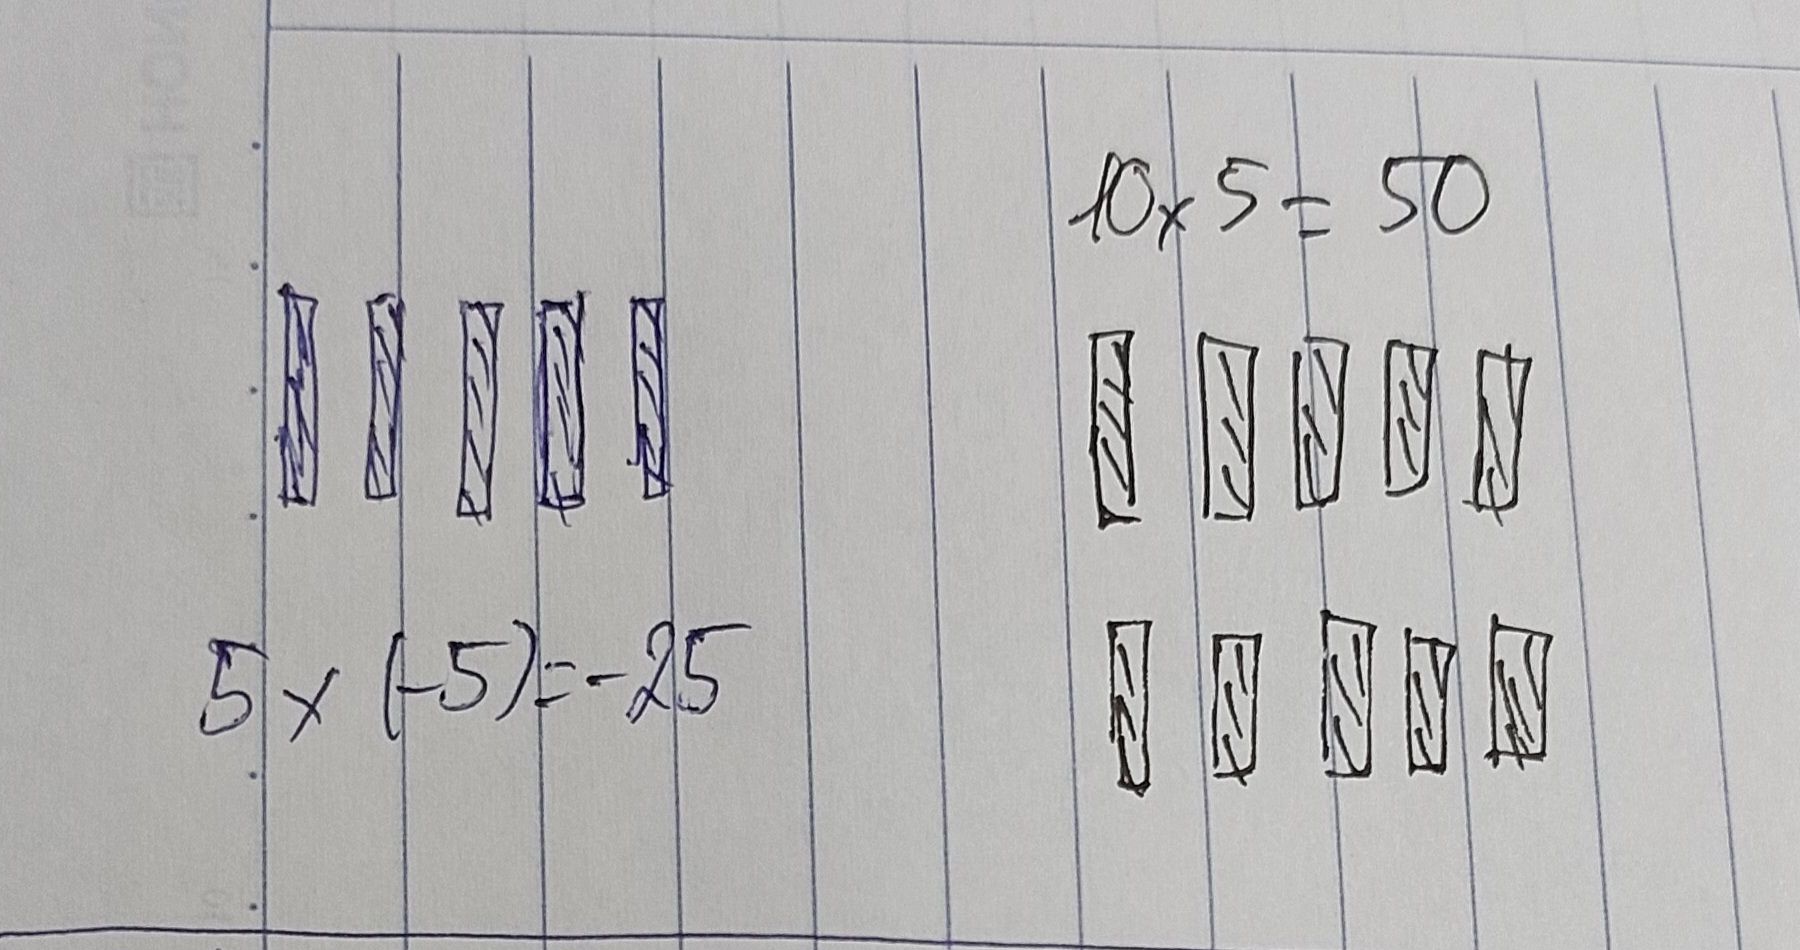 10x5=50
5x(-5)=-25